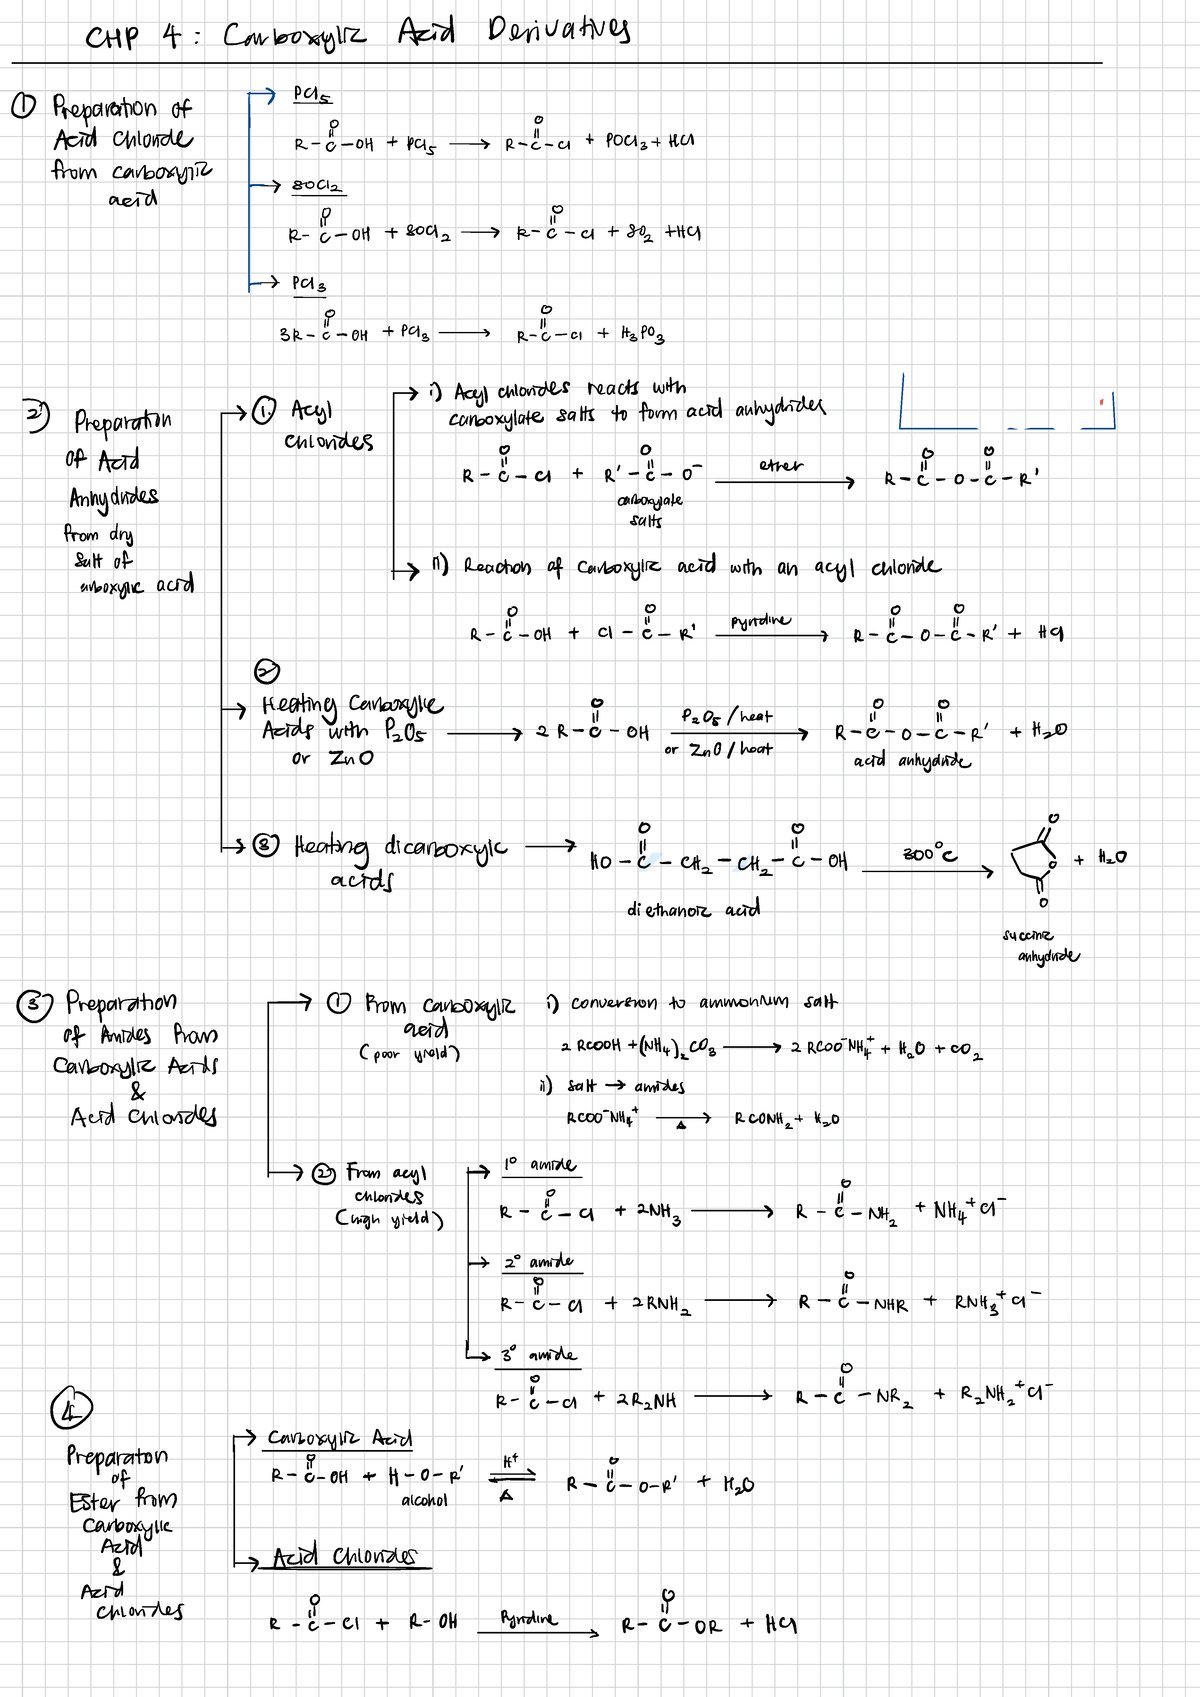 CHP 4 : Carboxylic Acid Derivatives
① Preparation of
Acid Chloride
from carboxylic
acid
PCl5
O
R-C-OH + PCl5 → R-C-Cl + POCl3 + HCl
SOCl2
O
R-C-OH + SOCl2 → R-C-Cl + SO2 + HCl
PCl3
O
3R-C-OH + PCl3 → R-C-Cl + H3PO3
2) Preparation
of Acid
Anhydrides
from dry
salt of
carboxylic acid
① Acyl
chlorides
i) Acyl chlorides reacts with
carboxylate salts to form acid anhydrides
O O O O
R-C-Cl + R'-C-O⁻ ether → R-C-O-C-R'
carboxylate
salts
ii) Reaction of carboxylic acid with an acyl chloride
O O O O
R-C-OH + Cl-C-R' Pyridine → R-C-O-C-R' + HCl
②
Heating Carboxylic
Acids with P2O5
or ZnO
O O O
→ 2 R-C-OH P2O5/heat or ZnO/heat → R-C-O-C-R' + H2O
acid anhydride
③ Heating dicarboxylc
acids
O O O
→ HO-C-CH2-CH2-C-OH 300°C → O + H2O
O
diethanoic acid
succinic
anhydride
③ Preparation
of Amides from
Carboxylic Acids
&
Acid Chlorides
① From carboxylic
acid
(poor yield)
i) conversion to ammonium salt
2 RCOOH + (NH4)2CO3 → 2 RCOO⁻NH4⁺ + H2O + CO2
ii) salt → amides
RCOO⁻NH4⁺ Δ → RCONH2 + H2O
② From acyl
chlorides
(high yield)
1° amide
O O
R-C-Cl + 2NH3 → R-C-NH2 + NH4⁺Cl⁻
2° amide
O O
R-C-Cl + 2RNH2 → R-C-NHR + RNH3⁺Cl⁻
3° amide
O O
R-C-Cl + 2R2NH → R-C-NR2 + R2NH2⁺Cl⁻
④
Preparaton
of
Ester from
Carboxylic
Acid
&
Acid
Chlorides
Carboxylic Acid
O O
R-C-OH + H-O-R' H⁺ ⇌ Δ R-C-O-R' + H2O
alcohol
Acid Chlorides
O O
R-C-Cl + R-OH Pyridine → R-C-OR + HCl